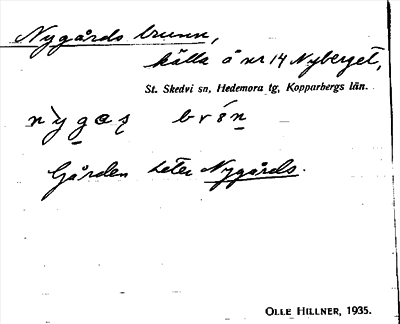 Nygårds brunn,
källa å nr 14 Nyberget,
St. Skedvi sn, Hedemora tg, Kopparbergs län.
Gården heter Nygårds.
OLLE HILLNER, 1935.